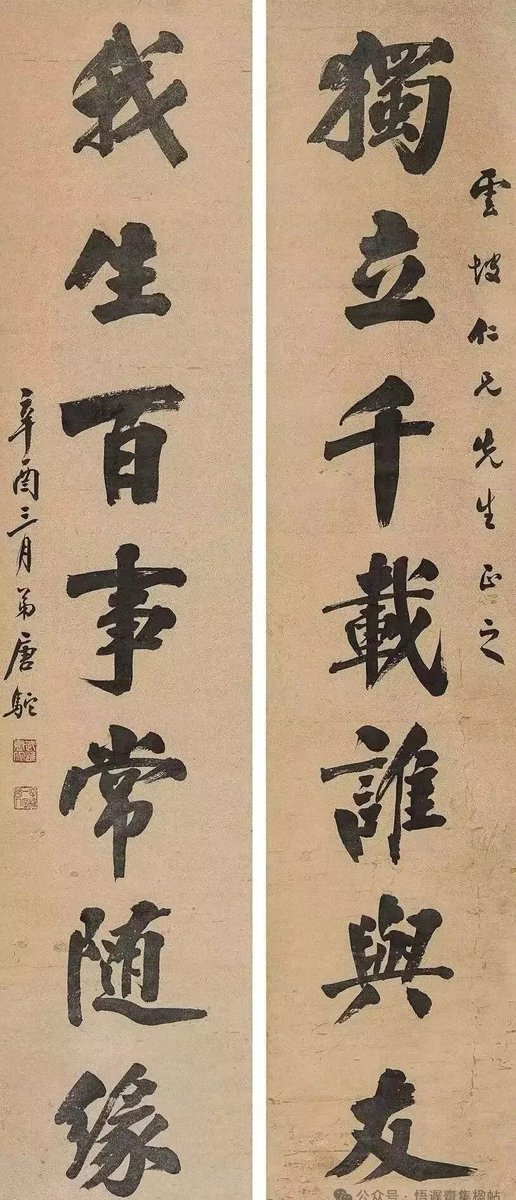 雲坡仁兄先生正之
獨立千載誰與友
我生百事常随緣
辛酉三月弟唐駝
公众号·悟遲齋集楹帖